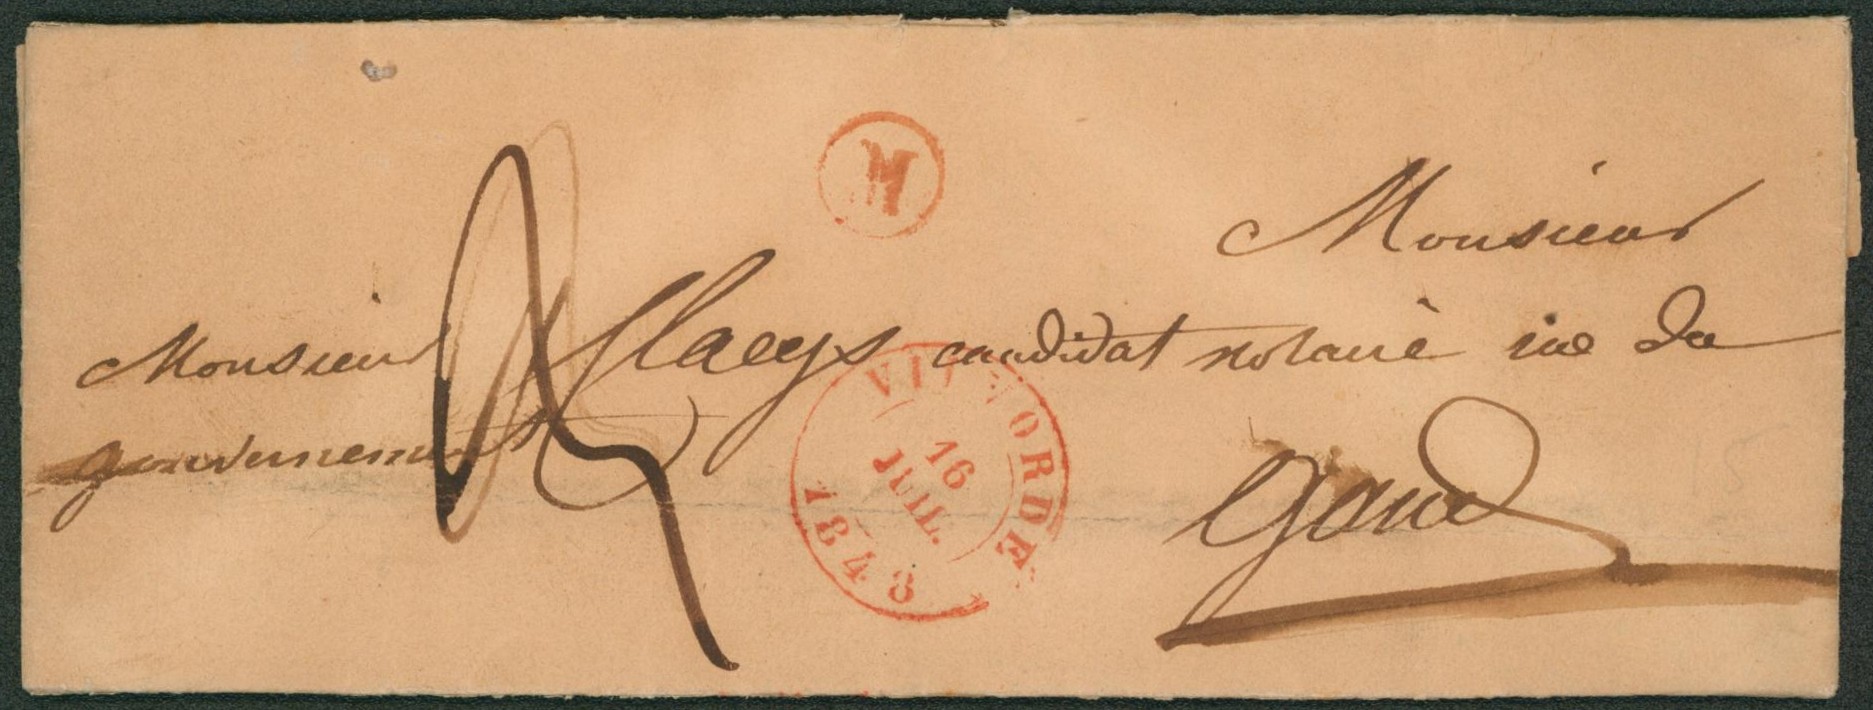 M
Monsieur
Monsieur Claeys candidat notaire rue du
gouvernement
Gand
VILVORDE
16
JUIL.
1843